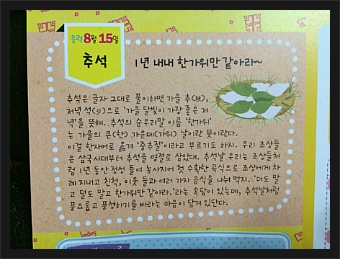 음력 8월 15일
추석
1년 내내 한가위만 같아라~
추석은 글자 그대로 풀이하면 가을 추(秋),
저녁 석(夕)으로 '가을 달빛이 가장 좋은 저
녁'을 뜻해. 추석의 순우리말 이름 '한가위'
는 가을의 큰(한) 가운데(가위) 날이란 뜻이란다.
이걸 한자어로 옮겨 '중추절'이라고 부르기도 하시. 우리 조상들
은 삼국시대부터 추석을 명절로 삼았대. 추석날 우리는 조상들처
럼 1년 동안 정성 들여 농사지어 첫 수확한 곡식으로 조상에게 차
례 지내고 친척, 이웃 들과 여러 가지 음식을 나눠 먹지. '더도 말
고 덜도 말고 한가위만 같아라.'라는 속담이 있는데, 추석날처럼
풍요롭고 풍성하기를 바라는 마음이 담겨 있단다.